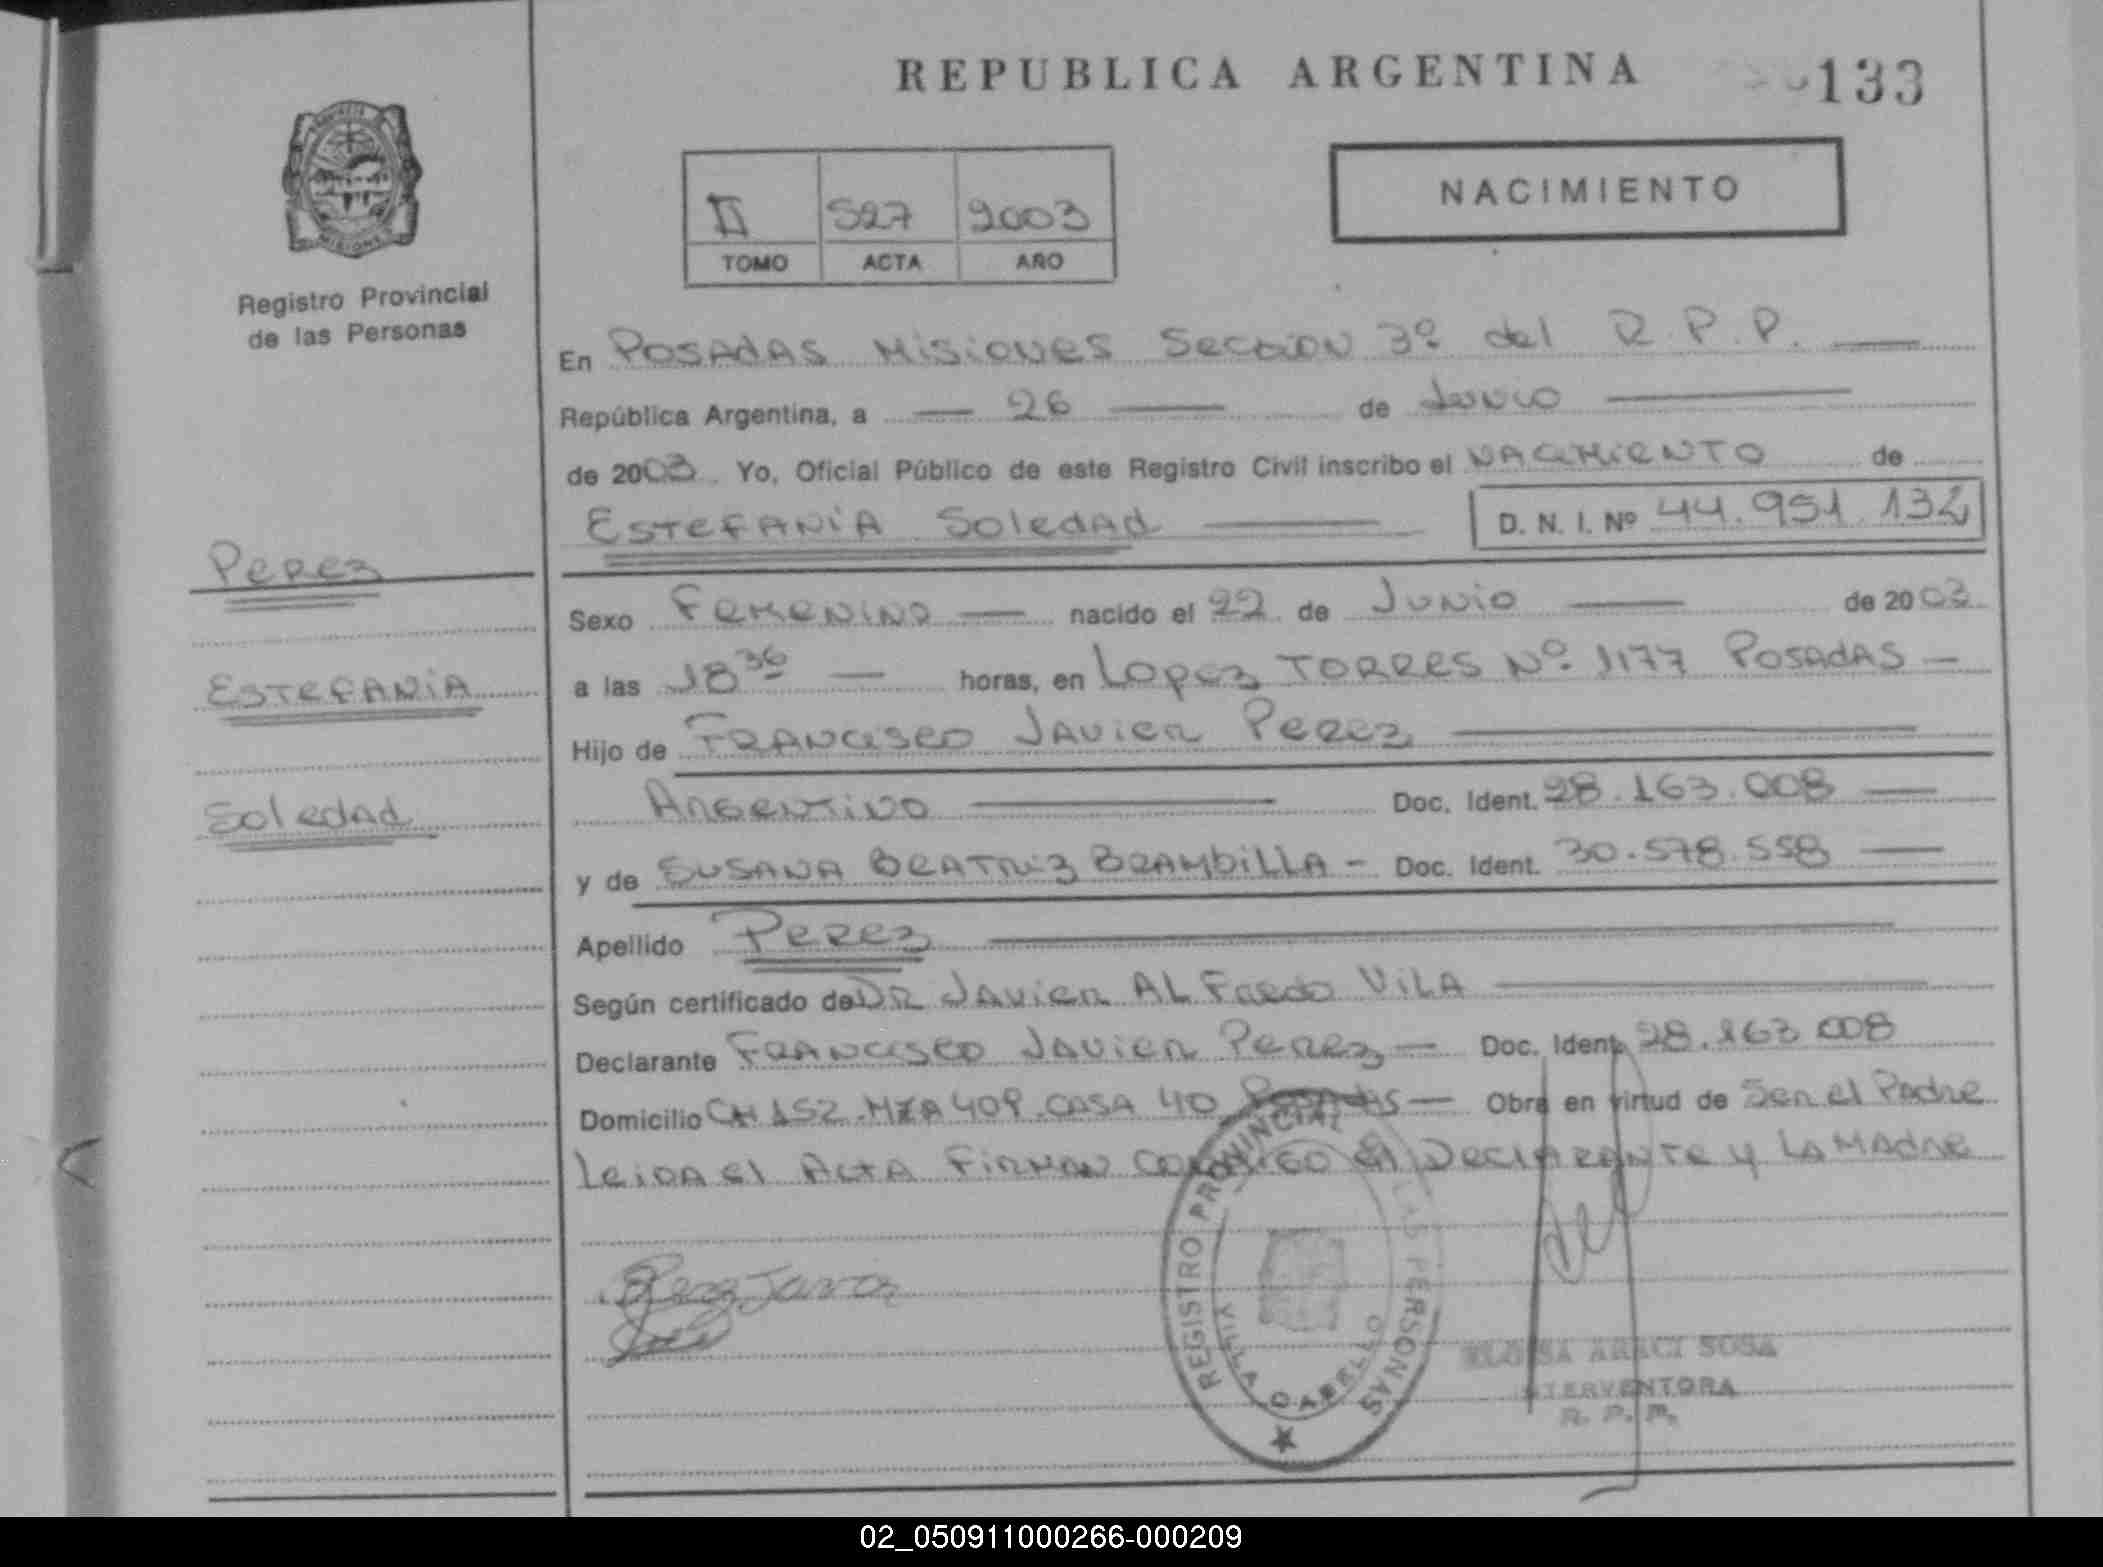 REPUBLICA ARGENTINA
133
NACIMIENTO
II 527 2003
TOMO ACTA AÑO
Registro Provincial
de las Personas
En Posadas Misiones Sección 3º del R.P.P.
República Argentina, a 26 de Junio
de 2003. Yo, Oficial Público de este Registro Civil inscribo el Nacimiento de
Estefanía Soledad
D. N. I. Nº 44.951.132
Perez
Estefanía
Soledad
Sexo Femenino nacido el 22 de Junio de 2003
a las 18 36 horas, en Lopez Torres Nº 1177 Posadas
Hijo de Francisco Javier Perez
Argentino Doc. Ident. 28.163.008
y de Susana Beatriz Brambilla - Doc. Ident. 30.578.558
Apellido Perez
Según certificado de Dr Javier Alfredo Vila
Declarante Francisco Javier Perez Doc. Ident. 28.163.008
Domicilio CH 152 MZA 409 CASA 40 Posadas Obra en virtud de Ser el Padre
Leida el Acta Firman conmigo el Declarante y la Madre
Perez Javier
REGISTRO PROVINCIAL LAS PERSONAS
VILLA CABELLO
ELOISA ARACI SOSA
INTERVENTORA
R. P. P.
02_050911000266-000209